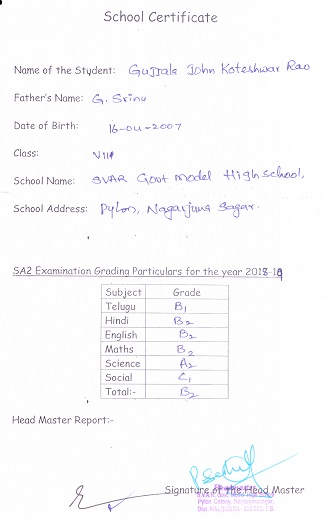 School Certificate
Name of the Student: Gujjala John Koteshwar Rao
Father's Name: G. Srinu
Date of Birth: 16-04-2007
Class: VIII
School Name: SVAR Govt model High school,
School Address: Pylon, Nagarjuna Sagar.
SA2 Examination Grading Particulars for the year 2018-19
Subject Grade
Telugu B1
Hindi B2
English B2
Maths B2
Science A2
Social C1
Total:- B2
Head Master Report:-
Signature of the Head Master